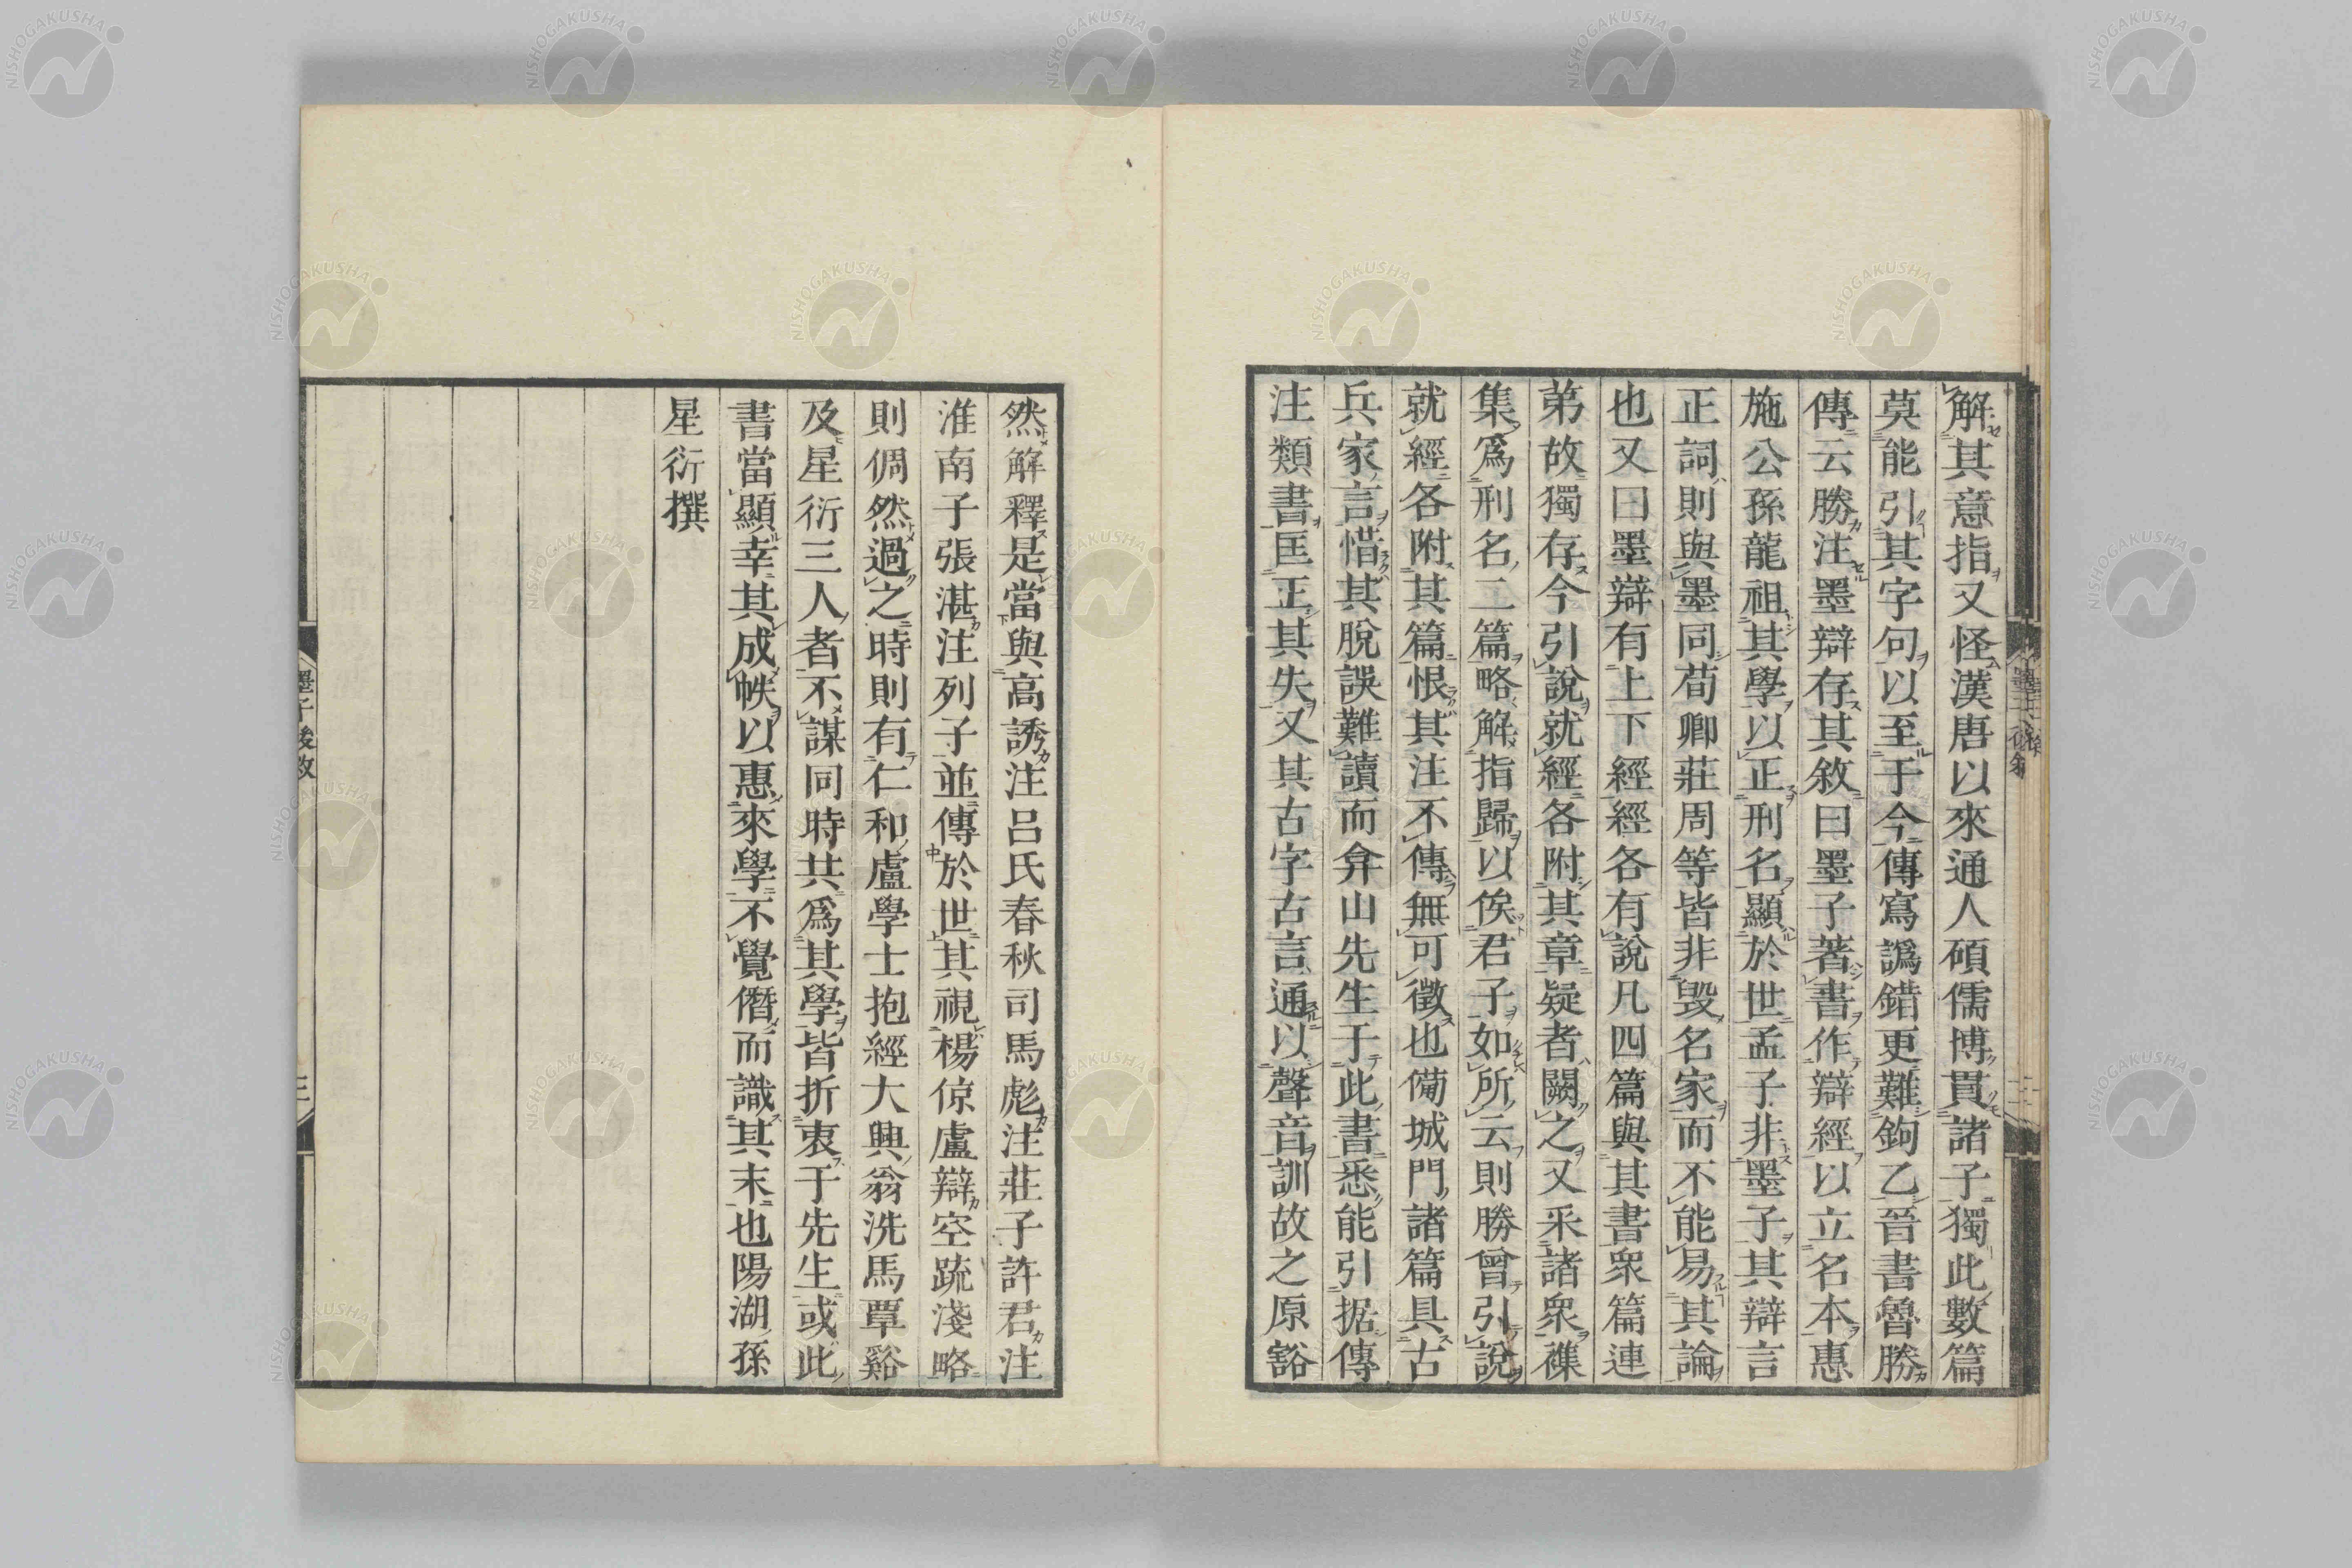 解其意指又怪漢唐以來通人碩儒博貫諸子獨此數篇
莫能引其字句以至于今傳寫譌錯更難鉤乙晉書魯勝
傳云勝注墨辯存其敘曰墨子著書作辯經以立名本惠
施公孫龍祖其學以正刑名顯於世孟子非墨子其辯言
正詞則與墨同荀卿莊周等皆非毀名家而不能易其論
也又曰墨辯有上下經經各有說凡四篇與其書衆篇連
第故獨存今引說就經各附其章疑者闕之又采諸衆襍
集爲刑名二篇略解指歸以俟君子如所云則勝曾引說
就經各附其篇恨其注不傳無可徵也備城門諸篇具古
兵家言惜其脫誤難讀而弇山先生于此書悉能引据傳
注類書匡正其失又其古字古言通以聲音訓故之原豁
然解釋是當與高誘注呂氏春秋司馬彪注莊子許君注
淮南子張湛注列子並傳於世其視楊倞盧辯空疏淺略
則倜然過之時則有仁和盧學士抱經大興翁洗馬覃谿
及星衍三人者不謀同時共爲其學皆折衷于先生或此
書當顯幸其成帙以惠來學不覺僭而識其末也陽湖孫
星衍撰
墨子後敘
三